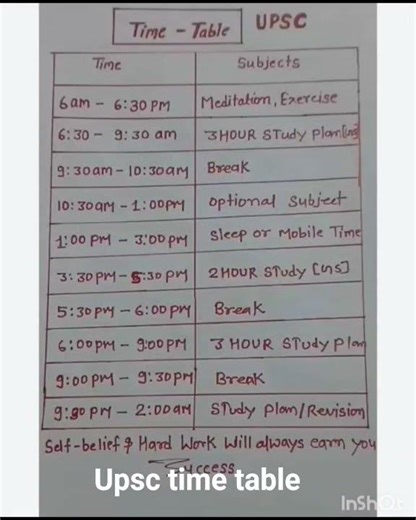 Time - Table UPSC
Time Subjects
6am - 6:30 PM Meditation, Exercise
6:30 - 9:30 am 3HOUR STudy Plan [ns]
9:30am - 10:30AM Break
10:30AM - 1:00PM optional Subject
1:00 PM - 3:00 PM Sleep or Mobile Time
3:30 PM - 5:30 PM 2HOUR STudy [ns]
5:30 PM - 6:00 PM Break
6:00PM - 9:00PM 3 HOUR STudy Plan
9:00 PM - 9:30 PM Break
9:30 PM - 2:00am STudy Plan/Revision
Self-belief & Hard Work Will always earn you
Success
Upsc time table
InShOt